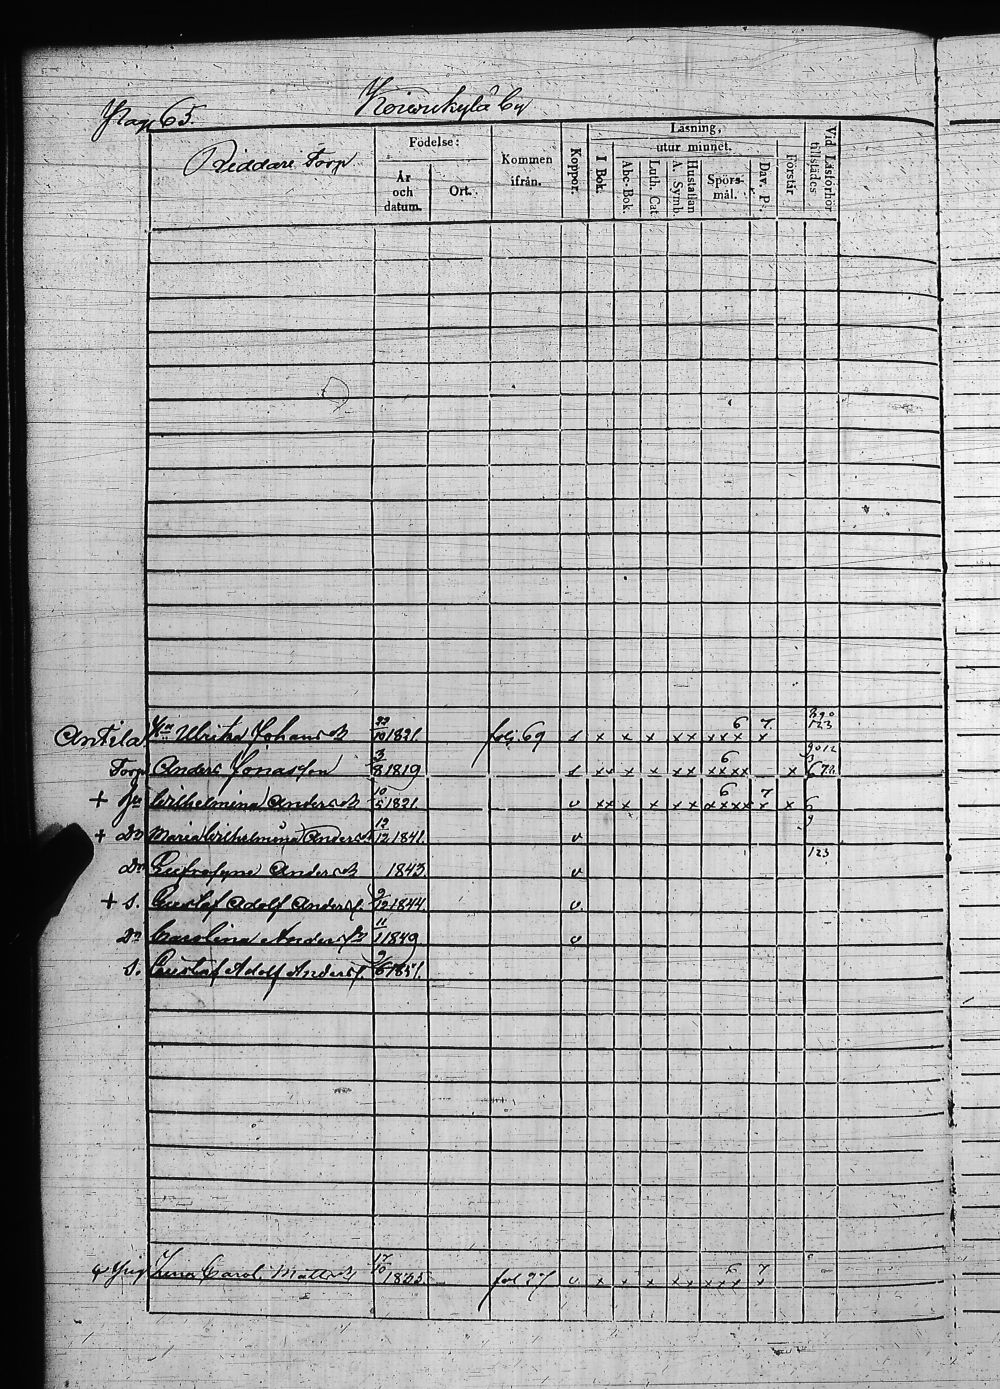 Pag 65. Koivukylä by
Riddare Torp
Födelse:
År och datum.
Ort.
Kommen ifrån.
Koppor.
Läsning,
I Bok.
utur minnet.
Abc-Bok.
Luth. Cat.
Hustaflan A. Symb.
Spörsmål.
Dav. P.
Förstår
Vid Läsförhör tillstädes
Antila Ulrika Johans dr 22/10 1821. fol. 69 s x x x xx xxx 6 x 7 123
Torp. Anders Jonasson 3/8 1819 s xx x x xx xxxx 6 x
+ Hu Wilhelmina Anders dr 10/5 1821. v xxx x x xx xxxx 6 x 7 x
+ Dr Maria Wilhelmina Anders 12/12 1841. v
Dr Eufrosyne Anders dr 1843. v 123
+ S. Gustaf Adolf Anders f. 9/12 1844. v
Dr Carolina Anders dr 11/1 1849. v
S. Gustaf Adolf Anders f. 9/6 1851.
Carol. Matts dr 17/10 1835. fol 27 v x x x xx xxx 6 x 7